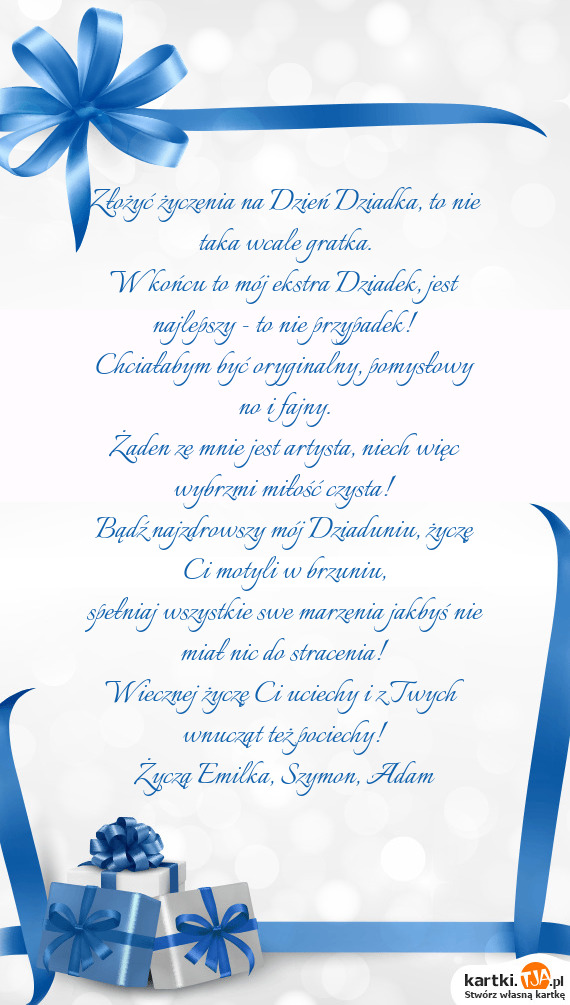 Złożyć życzenia na Dzień Dziadka, to nie
taka wcale gratka.
W końcu to mój ekstra Dziadek, jest
najlepszy - to nie przypadek!
Chciałabym być oryginalny, pomysłowy
no i fajny.
Żaden ze mnie jest artysta, niech więc
wybrzmi miłość czysta!
Bądź najzdrowszy mój Dziaduniu, życzę
Ci motyli w brzuniu,
spełniaj wszystkie swe marzenia jakbyś nie
miał nic do stracenia!
Wiecznej życzę Ci uciechy i z Twych
wnucząt też pociechy!
Życzą Emilka, Szymon, Adam
kartki.TJA.pl
Stwórz własną kartkę